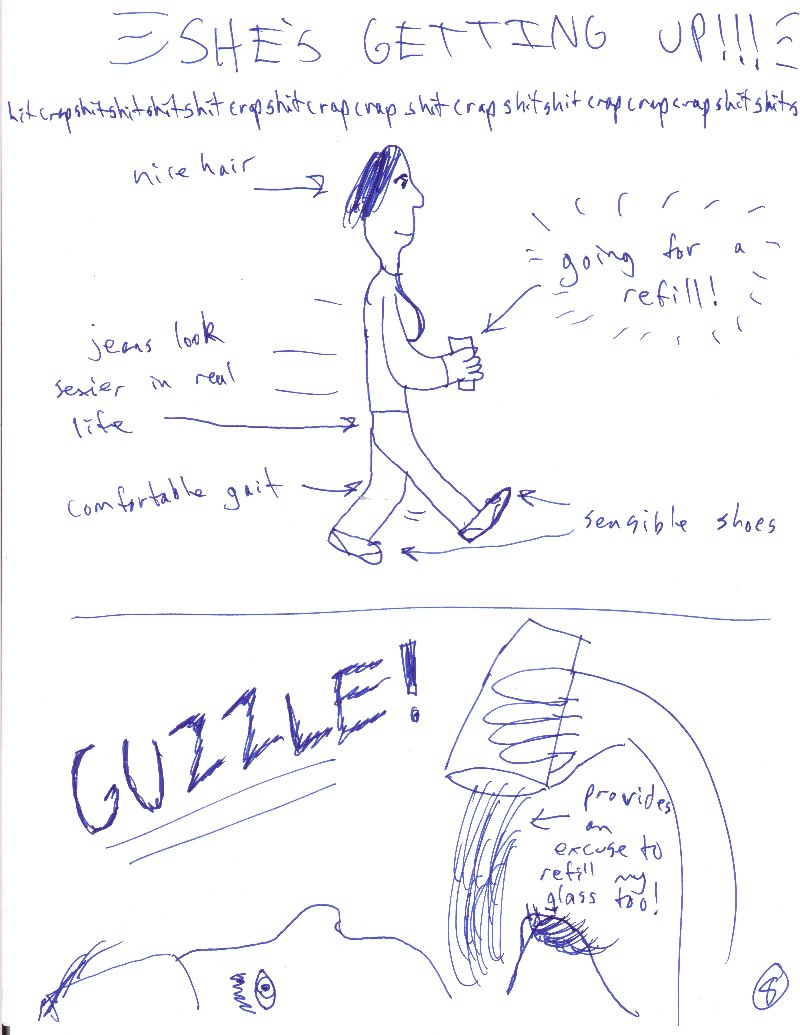 SHE'S GETTING UP!!!
hitcrapshitshitshitshit crapshitcrapcrap shit crap shitshit crap crapcrapshitshits
nice hair
going for a
refill!
jeans look
sexier in real
life
comfortable gait
sensible shoes
GUZZLE!
provides
an
excuse to
refill my
glass too!
8